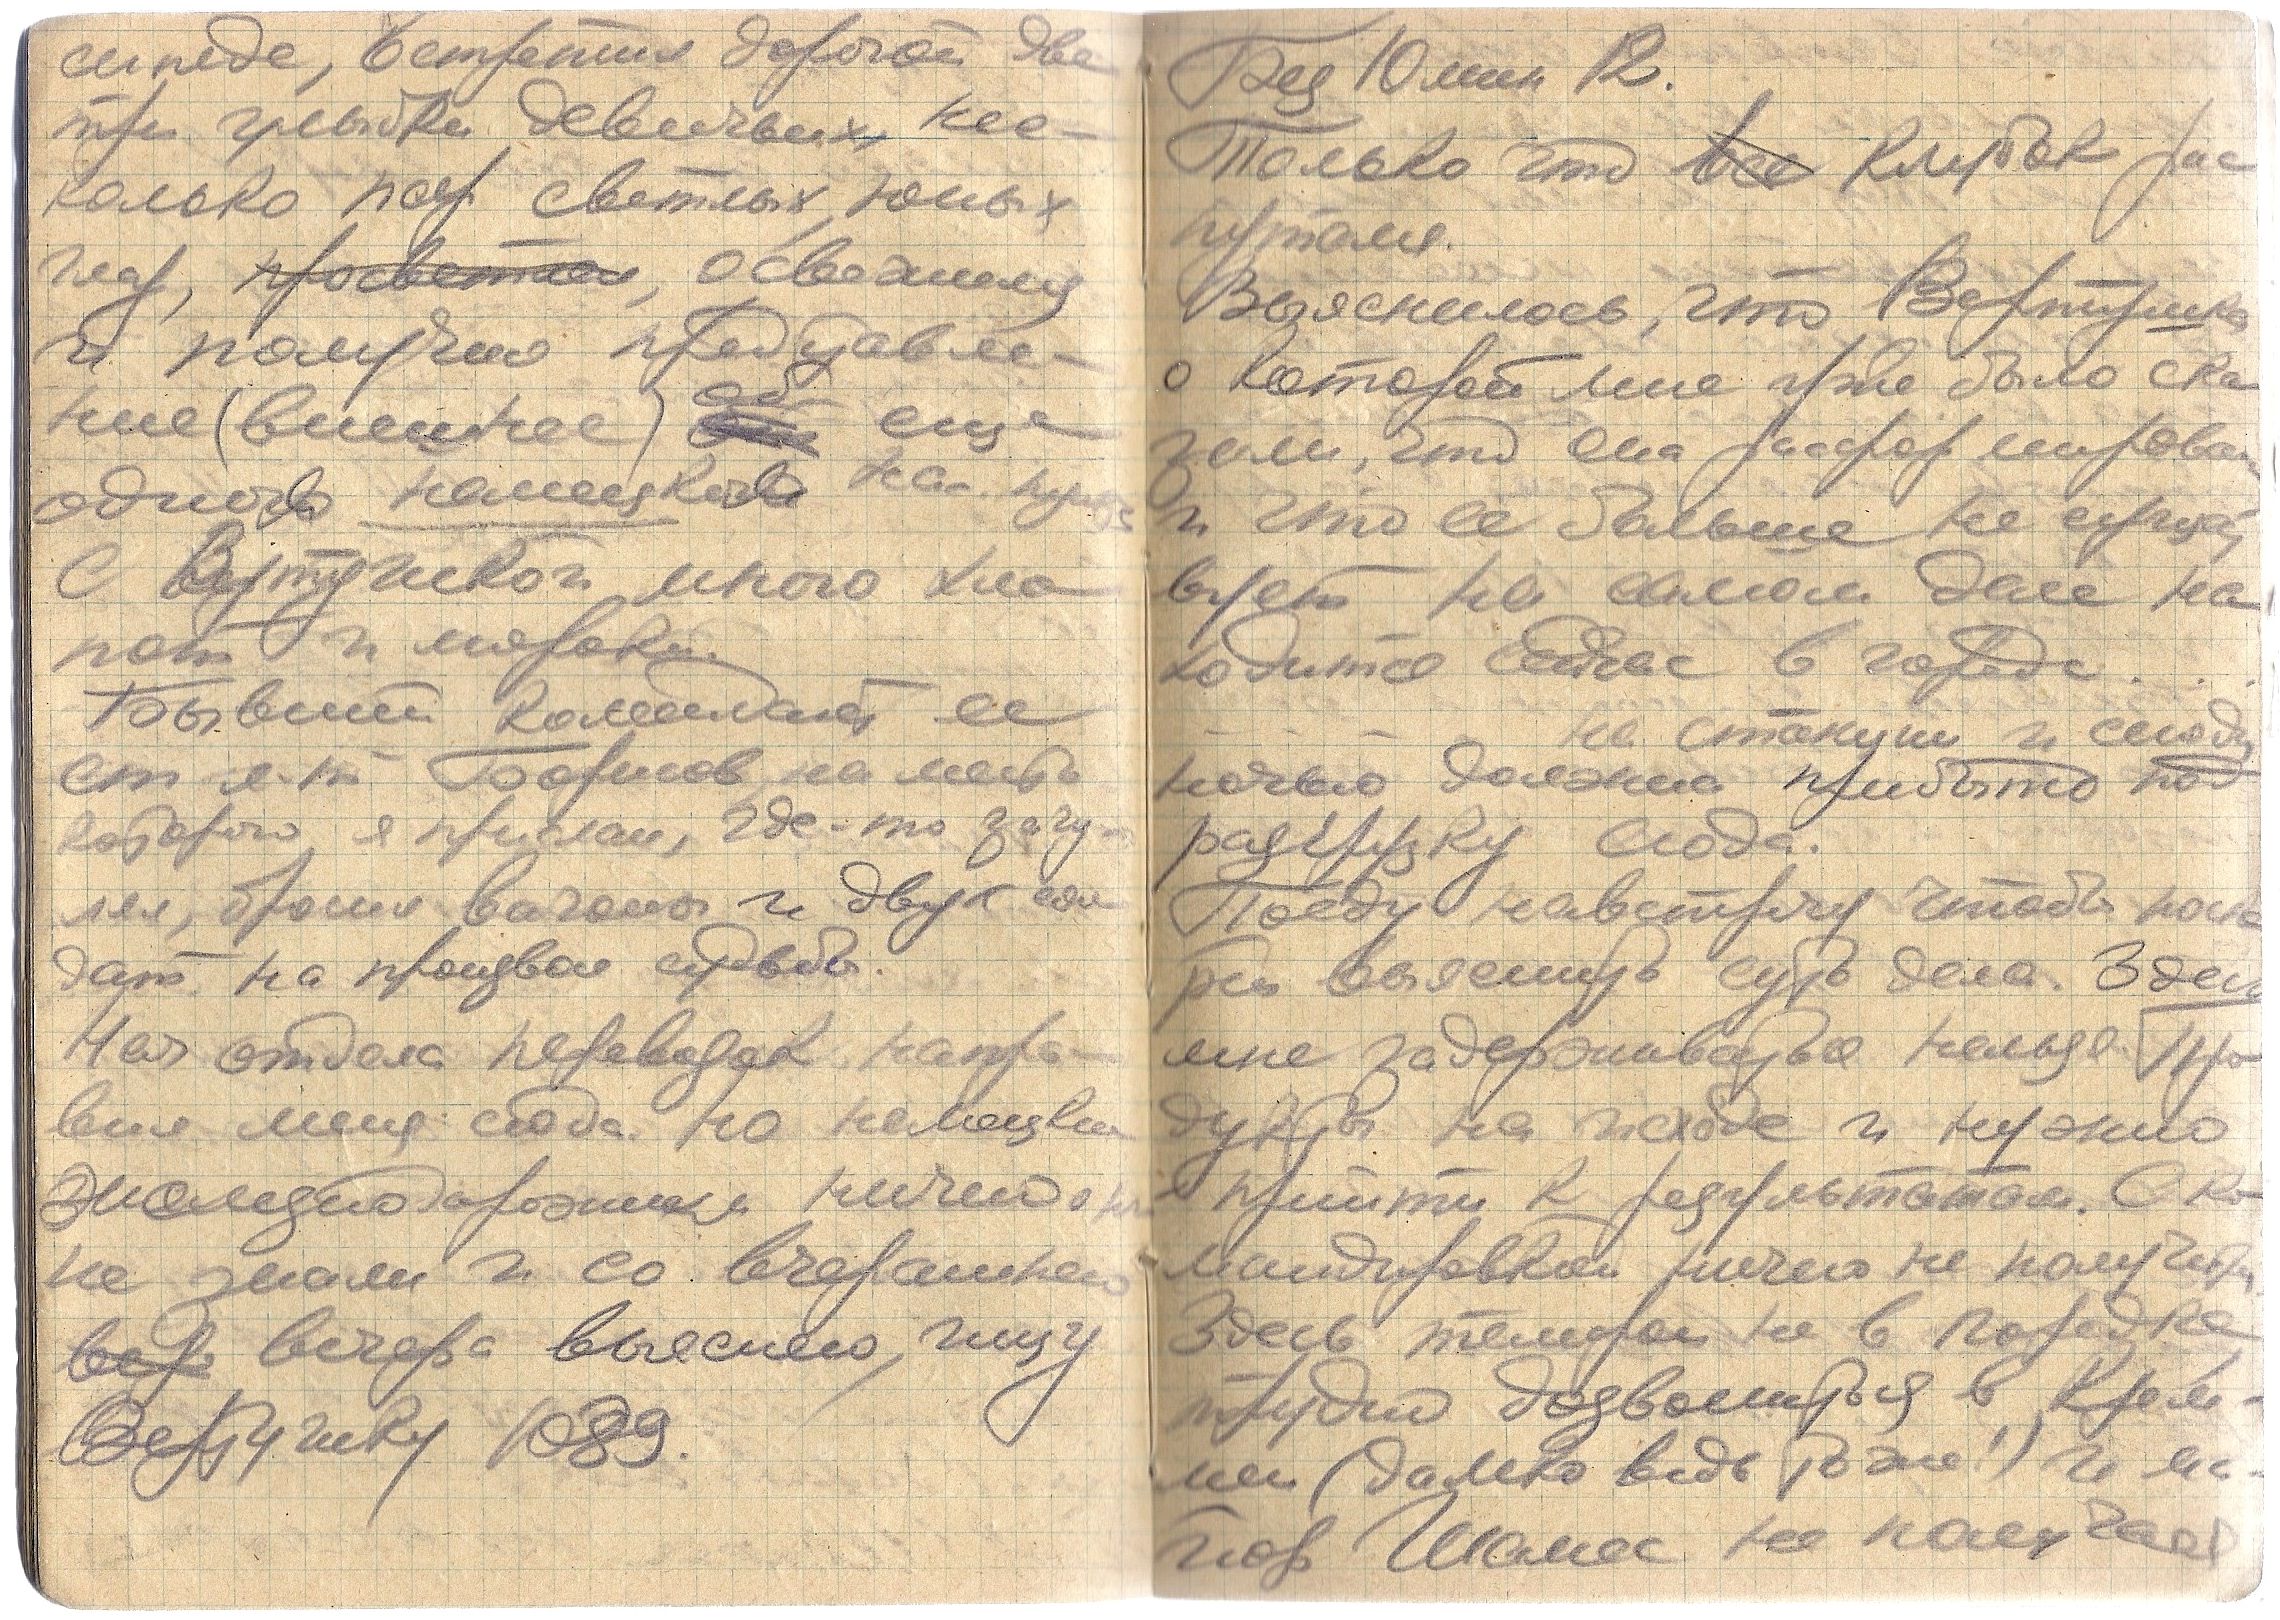 сипеде, встретил дорогой две
три улыбки девичьих, нес-
колько пар светлых юных
чар, просветлел, освежился
и получил представле-
ние (внешнее) об еще
одного немецкого
С Вертушкой много хло
пот и мороки.
Бывший комендант ее
ст л-т Борисов, на место
которого я прислан, где-то загу-
лял, бросил вагоны и двух сол
дат на произвол судьбы.
Нач отдела перевозок напра-
вил меня сюда. Но немецкие
железнодорожники ничего
не знали и со вчерашнего
вечера выясняю, ищу
Вертушку 1089.
Без 10 мин 12.
Только что все клубок рас
путался.
Выяснилось, что Вертушка
о которой мне уже было ска
зали, что она расформирована
и что ее больше не сущест
вует на самом деле на
ходится сейчас в городе . . .
- - - - на станции и сегодня
ночью должна прибыть под
разгрузку сюда.
Поеду навстречу чтобы поско
рей выяснить суть дела. Здесь
мне задерживаться нельзя. Про
дукты на исходе и нужно
прийти к результатам. С ко-
мандировкой ничего не получил.
Здесь телефон не в порядке
трудно дозвониться в Крем-
мен (далеко ведь тоже!) и ма-
йор Шалес не